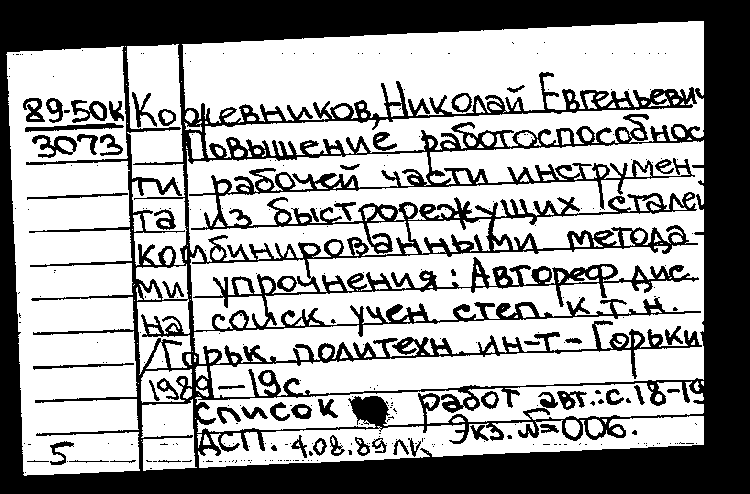 89-50к Кожевников, Николай Евгеньевич
3073 Повышение работоспособнос
ти рабочей части инструмен-
та из быстрорежущих сталей
комбинированными метода-
ми упрочнения: Автореф. дис.
на соиск. учен. степ. к.т.н.
/Горьк. политехн. ин-т.- Горький
1989 -19с.
список работ авт.: с.18-19
ДСП. 4.08.89 ЛК Экз. №=006.
5